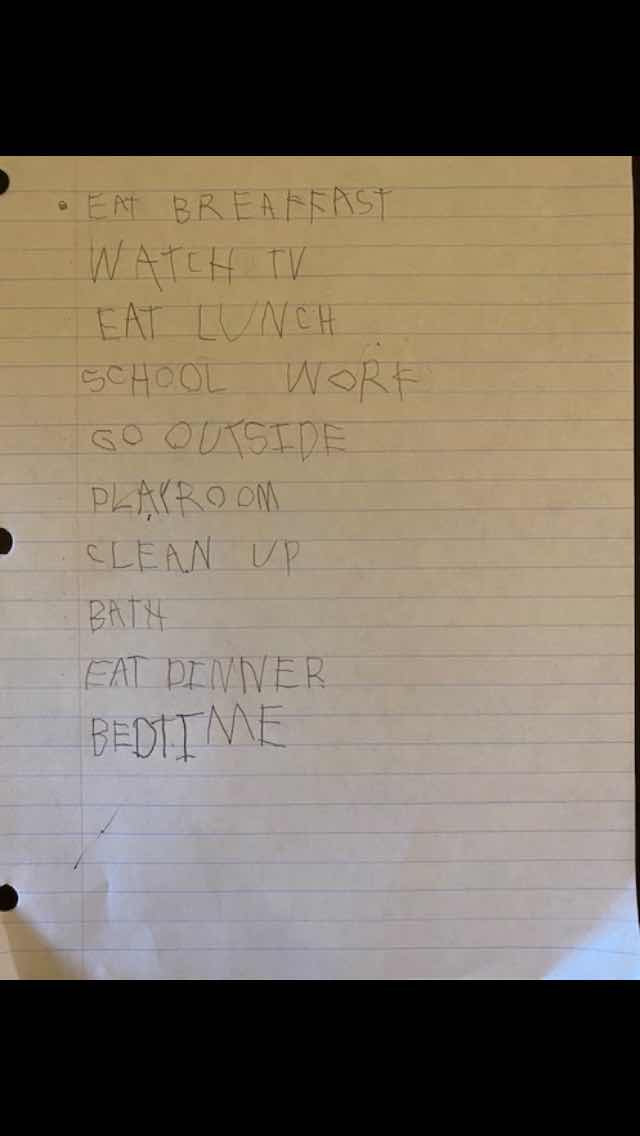 • EAT BREAFFAST
WATCH TV
EAT LUNCH
SCHOOL WORK
GO OUTSIDE
PLAYROOM
CLEAN UP
BATH
EAT DINNER
BEDTIME